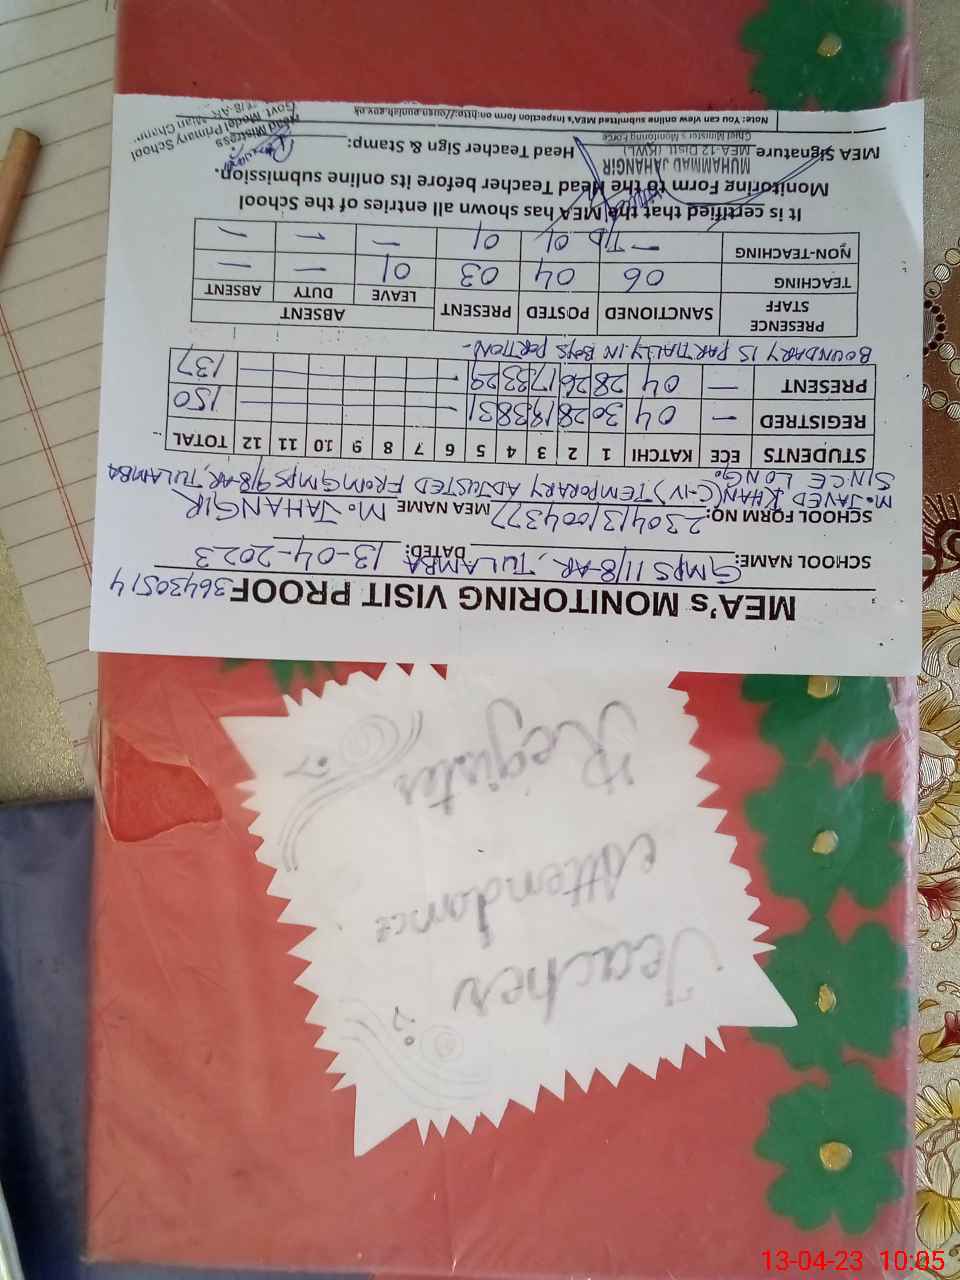 MEA's MONITORING VISIT PROOF 36430514
SCHOOL NAME: GMPS 11/8-AR, TULAMBA DATED: 13-04-2023
SCHOOL FORM NO: 2304131004377 MEA NAME M. JAHANGIR
M. JAVED KHAN (C-IV) TEMPORARY ADJUSTED FROM GMPS 9/8-AR, TULAMBA
SINCE LONG.
STUDENTS ECE KATCHI 1 2 3 4 5 6 7 8 9 10 11 12 TOTAL
REGISTRED — 04 30 28 19 38 31 150
PRESENT — 04 28 26 17 33 29 137
BOUNDARY IS PARTIALLY IN BOYS PORTION-
PRESENCE STAFF SANCTIONED POSTED PRESENT ABSENT
LEAVE DUTY ABSENT
TEACHING 06 04 03 01 — —
NON-TEACHING — 01 01 — — —
It is certified that the MEA has shown all entries of the School
Monitoring Form to the Head Teacher before its online submission.
MUHAMMAD JAHANGIR
MEA Signature MEA-12 Distt. (KWL) Head Teacher Sign & Stamp:
Chief Minister's Monitoring Force
Head Mistress
Govt Model Primary School
Note: You can view online submitted MEA's inspection form on:http://open.punjab.gov.pk
Teacher
Attendance
Register
13-04-23 10:05